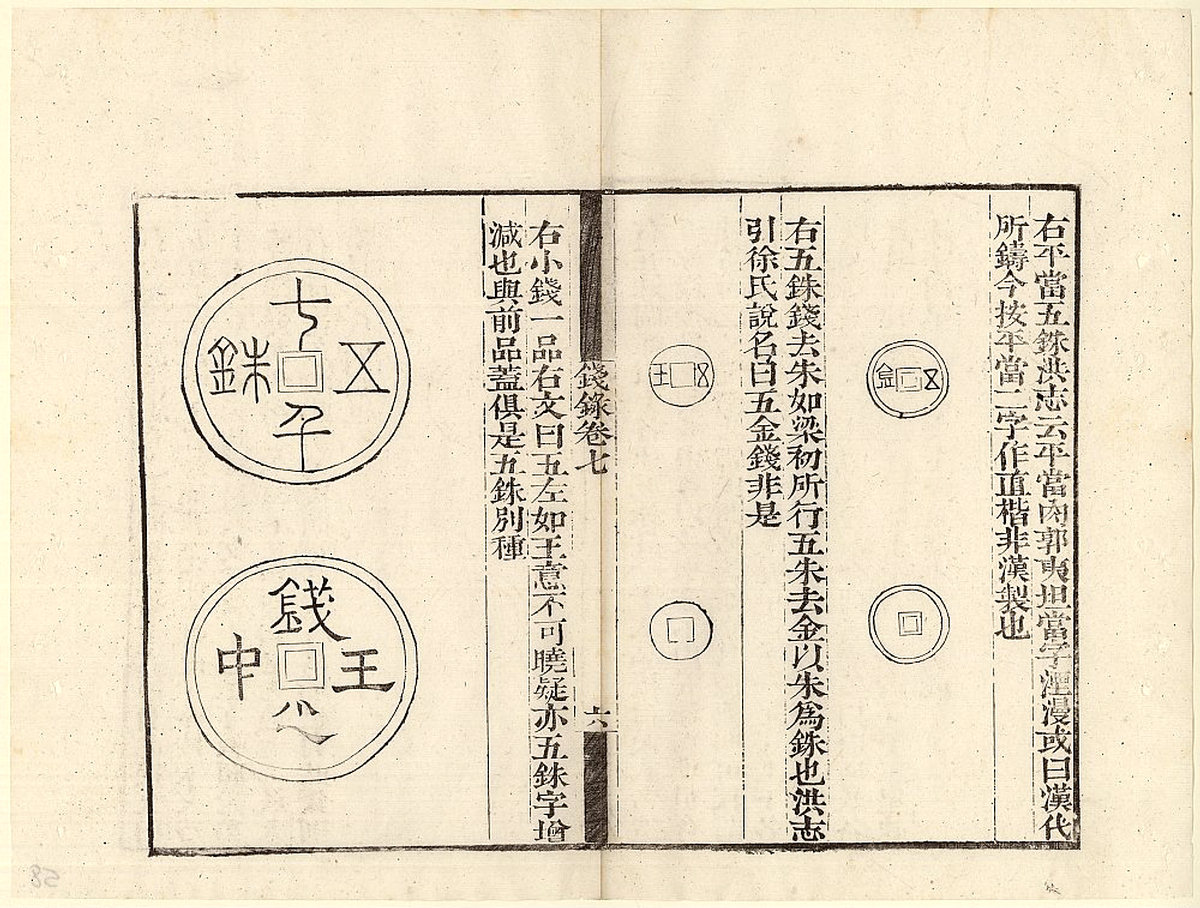 右平當五銖洪志云平當內郭夷坦當字湮漫或曰漢代
所鑄今按平當二字作直楷非漢製也
五 金
右五銖錢去朱如梁初所行五朱去金以朱為銖也洪志
引徐氏說名曰五金錢非是
五 王
錢錄卷七
六
右小錢一品右文曰五左如王意不可曉疑亦五銖字增
減也與前品蓋俱是五銖別種
五 銖
錢 王 中
58